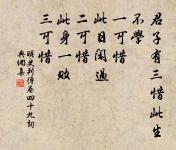 君子有三惜此生
不學
一可惜
此日閑過
二可惜
此身一敗
三可惜
明史列傳卷四十九